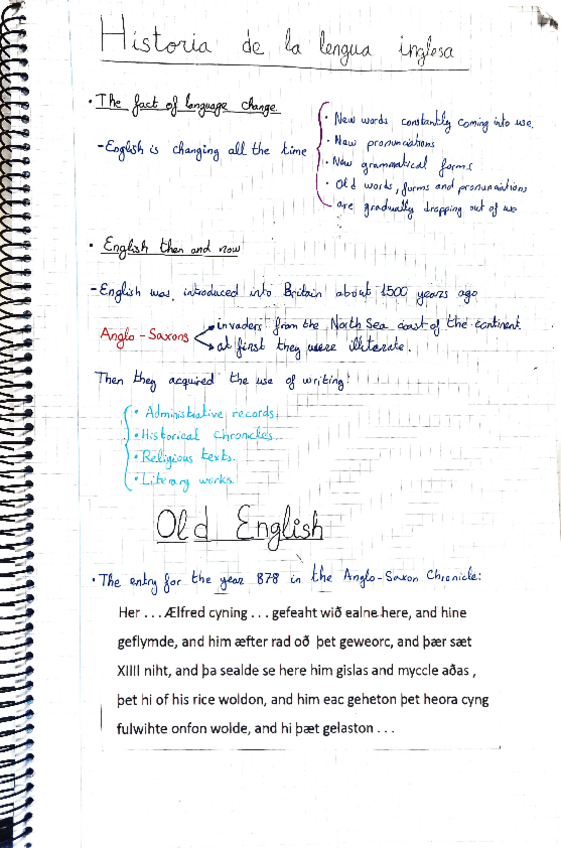 Historia de la lengua inglesa
• The fact of language change.
- English is changing all the time
• New words constantly coming into use.
• New pronunciations
• New grammatical forms
• Old words, forms and pronunciations
are gradually dropping out of use
• English then and now
- English was introduced into Britain about 1500 years ago
Anglo-Saxons
invaders from the North Sea coast of the continent.
at first they were illiterate.
Then they acquired the use of writing:
• Administrative records.
• Historical chronicles.
• Religious texts.
• Literary works.
Old English
• The entry for the year 878 in the Anglo-Saxon Chronicle:
Her . . . Ælfred cyning . . . gefeaht wið ealne here, and hine
geflymde, and him æfter rad oð þet geweorc, and þær sæt
XIIII niht, and þa sealde se here him gislas and myccle aðas ,
þet hi of his rice woldon, and him eac geheton þet heora cyng
fulwihte onfon wolde, and hi þæt gelaston . . .